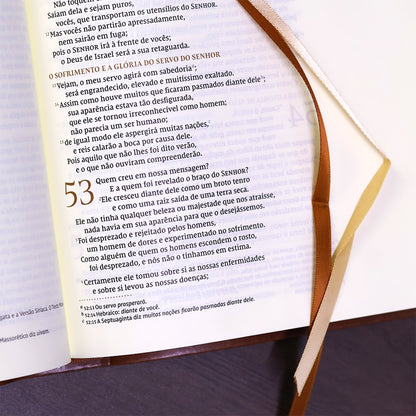 Não toquem em coisas impuras!
Saiam dela e sejam puros,
vocês, que transportam os utensílios do SENHOR.
12Mas vocês não partirão apressadamente,
nem sairão em fuga;
pois o SENHOR irá à frente de vocês;
o Deus de Israel será a sua retaguarda.
O SOFRIMENTO E A GLÓRIA DO SERVO DO SENHOR
13Vejam, o meu servo agirá com sabedoria a;
será engrandecido, elevado e muitíssimo exaltado.
14Assim como houve muitos que ficaram pasmados diante dele b;
sua aparência estava tão desfigurada,
que ele se tornou irreconhecível como homem;
não parecia um ser humano;
15de igual modo ele aspergirá muitas nações, c
e reis calarão a boca por causa dele.
Pois aquilo que não lhes foi dito verão,
e o que não ouviram compreenderão.
53 Quem creu em nossa mensagem?
E a quem foi revelado o braço do SENHOR?
2Ele cresceu diante dele como um broto tenro
e como uma raiz saída de uma terra seca.
Ele não tinha qualquer beleza ou majestade que nos atraísse,
nada havia em sua aparência para que o desejássemos.
3Foi desprezado e rejeitado pelos homens,
um homem de dores e experimentado no sofrimento.
Como alguém de quem os homens escondem o rosto,
foi desprezado, e nós não o tínhamos em estima.
4Certamente ele tomou sobre si as nossas enfermidades
e sobre si levou as nossas doenças;
a 52:13 Ou servo prosperará.
b 52:14 Hebraico: diante de você.
c 52:15 A Septuaginta diz muitas nações ficarão pasmadas diante dele.
e a Versão Siríaca. O Texto
Massorético diz alvem